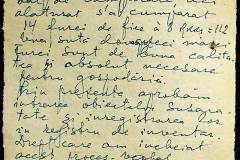 alăturat s'a cumpărat
14 furci de fier à 8 = 112
Una sută
furci sunt de bună calita-
tea și absolut necesare
pentru gospodărie.
Prin prezenta aprobăm
intrarea obiectelor susara-
tate și înregistrarea lor
în registru de inventar.
Drept care am încheiat
acest proces-verbal